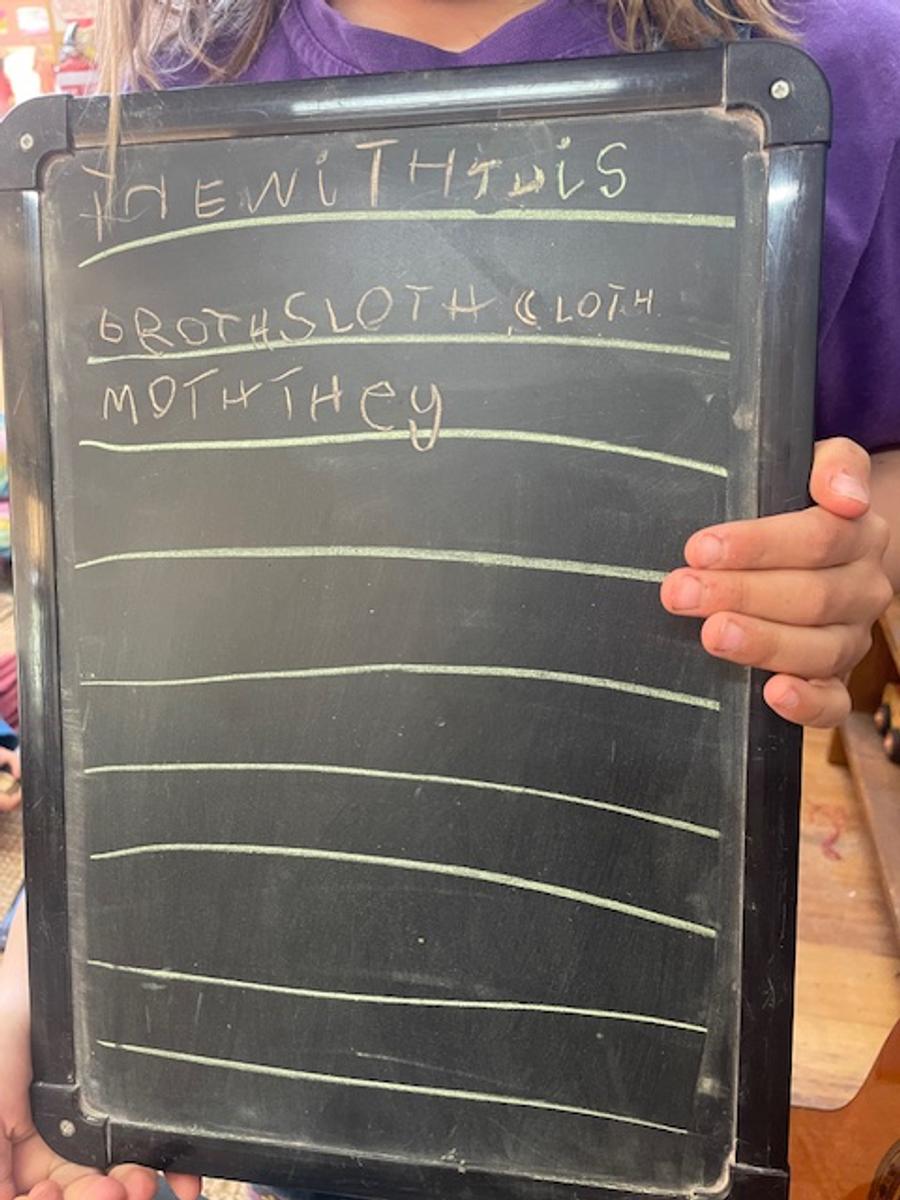 THEWiTHTHiS
bROTHSLOTHCLOTH
MOTHTHey